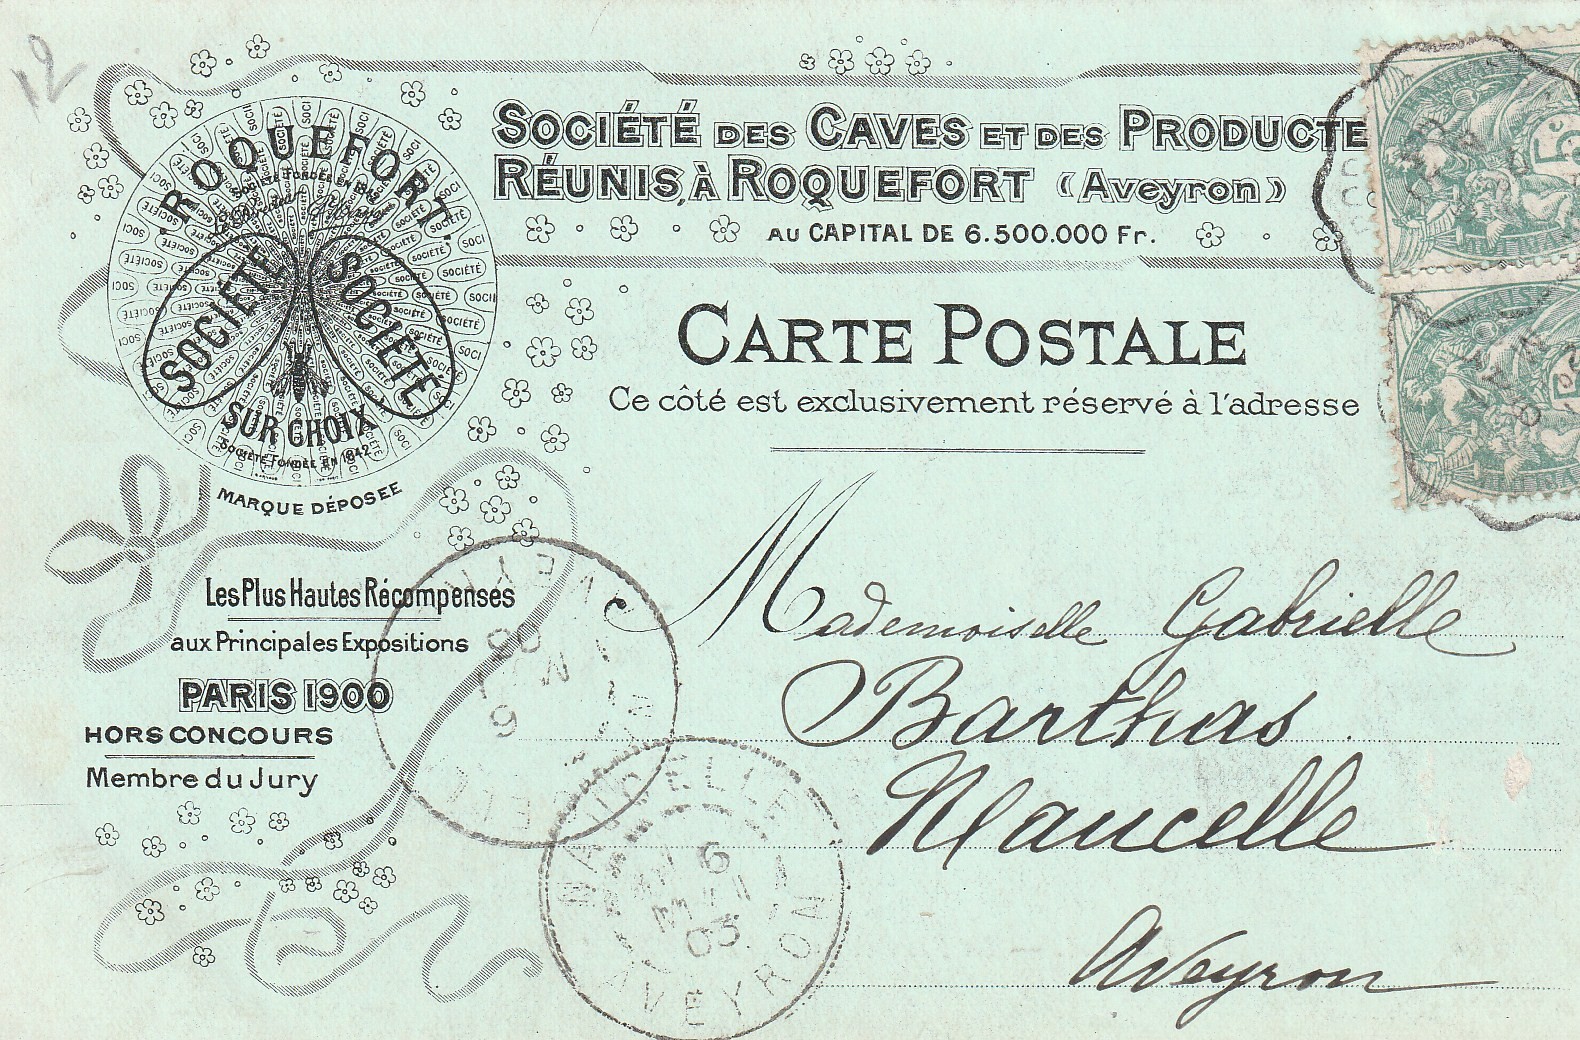 12
SOCIÉTÉ DES CAVES ET DES PRODUCTE
RÉUNIS, À ROQUEFORT (Aveyron)
AU CAPITAL DE 6.500.000 Fr.
CARTE POSTALE
Ce côté est exclusivement réservé à l'adresse
ROQUEFORT
SOCIÉTÉ FONDÉE EN 1842
SOCIÉTÉ SOCIÉTÉ
SUR CHOIX
SOCIÉTÉ FONDÉE EN 1842
MARQUE DÉPOSEE
Les Plus Hautes Récompenses
aux Principales Expositions
PARIS 1900
HORS CONCOURS
Membre du Jury
Mademoiselle Gabrielle
Barthas
Naucelle
Aveyron
NAUCELLE
6
MAI
03
AVEYRON
NAUCELLE
6
MAI
03
AVEYRON
5c
5c